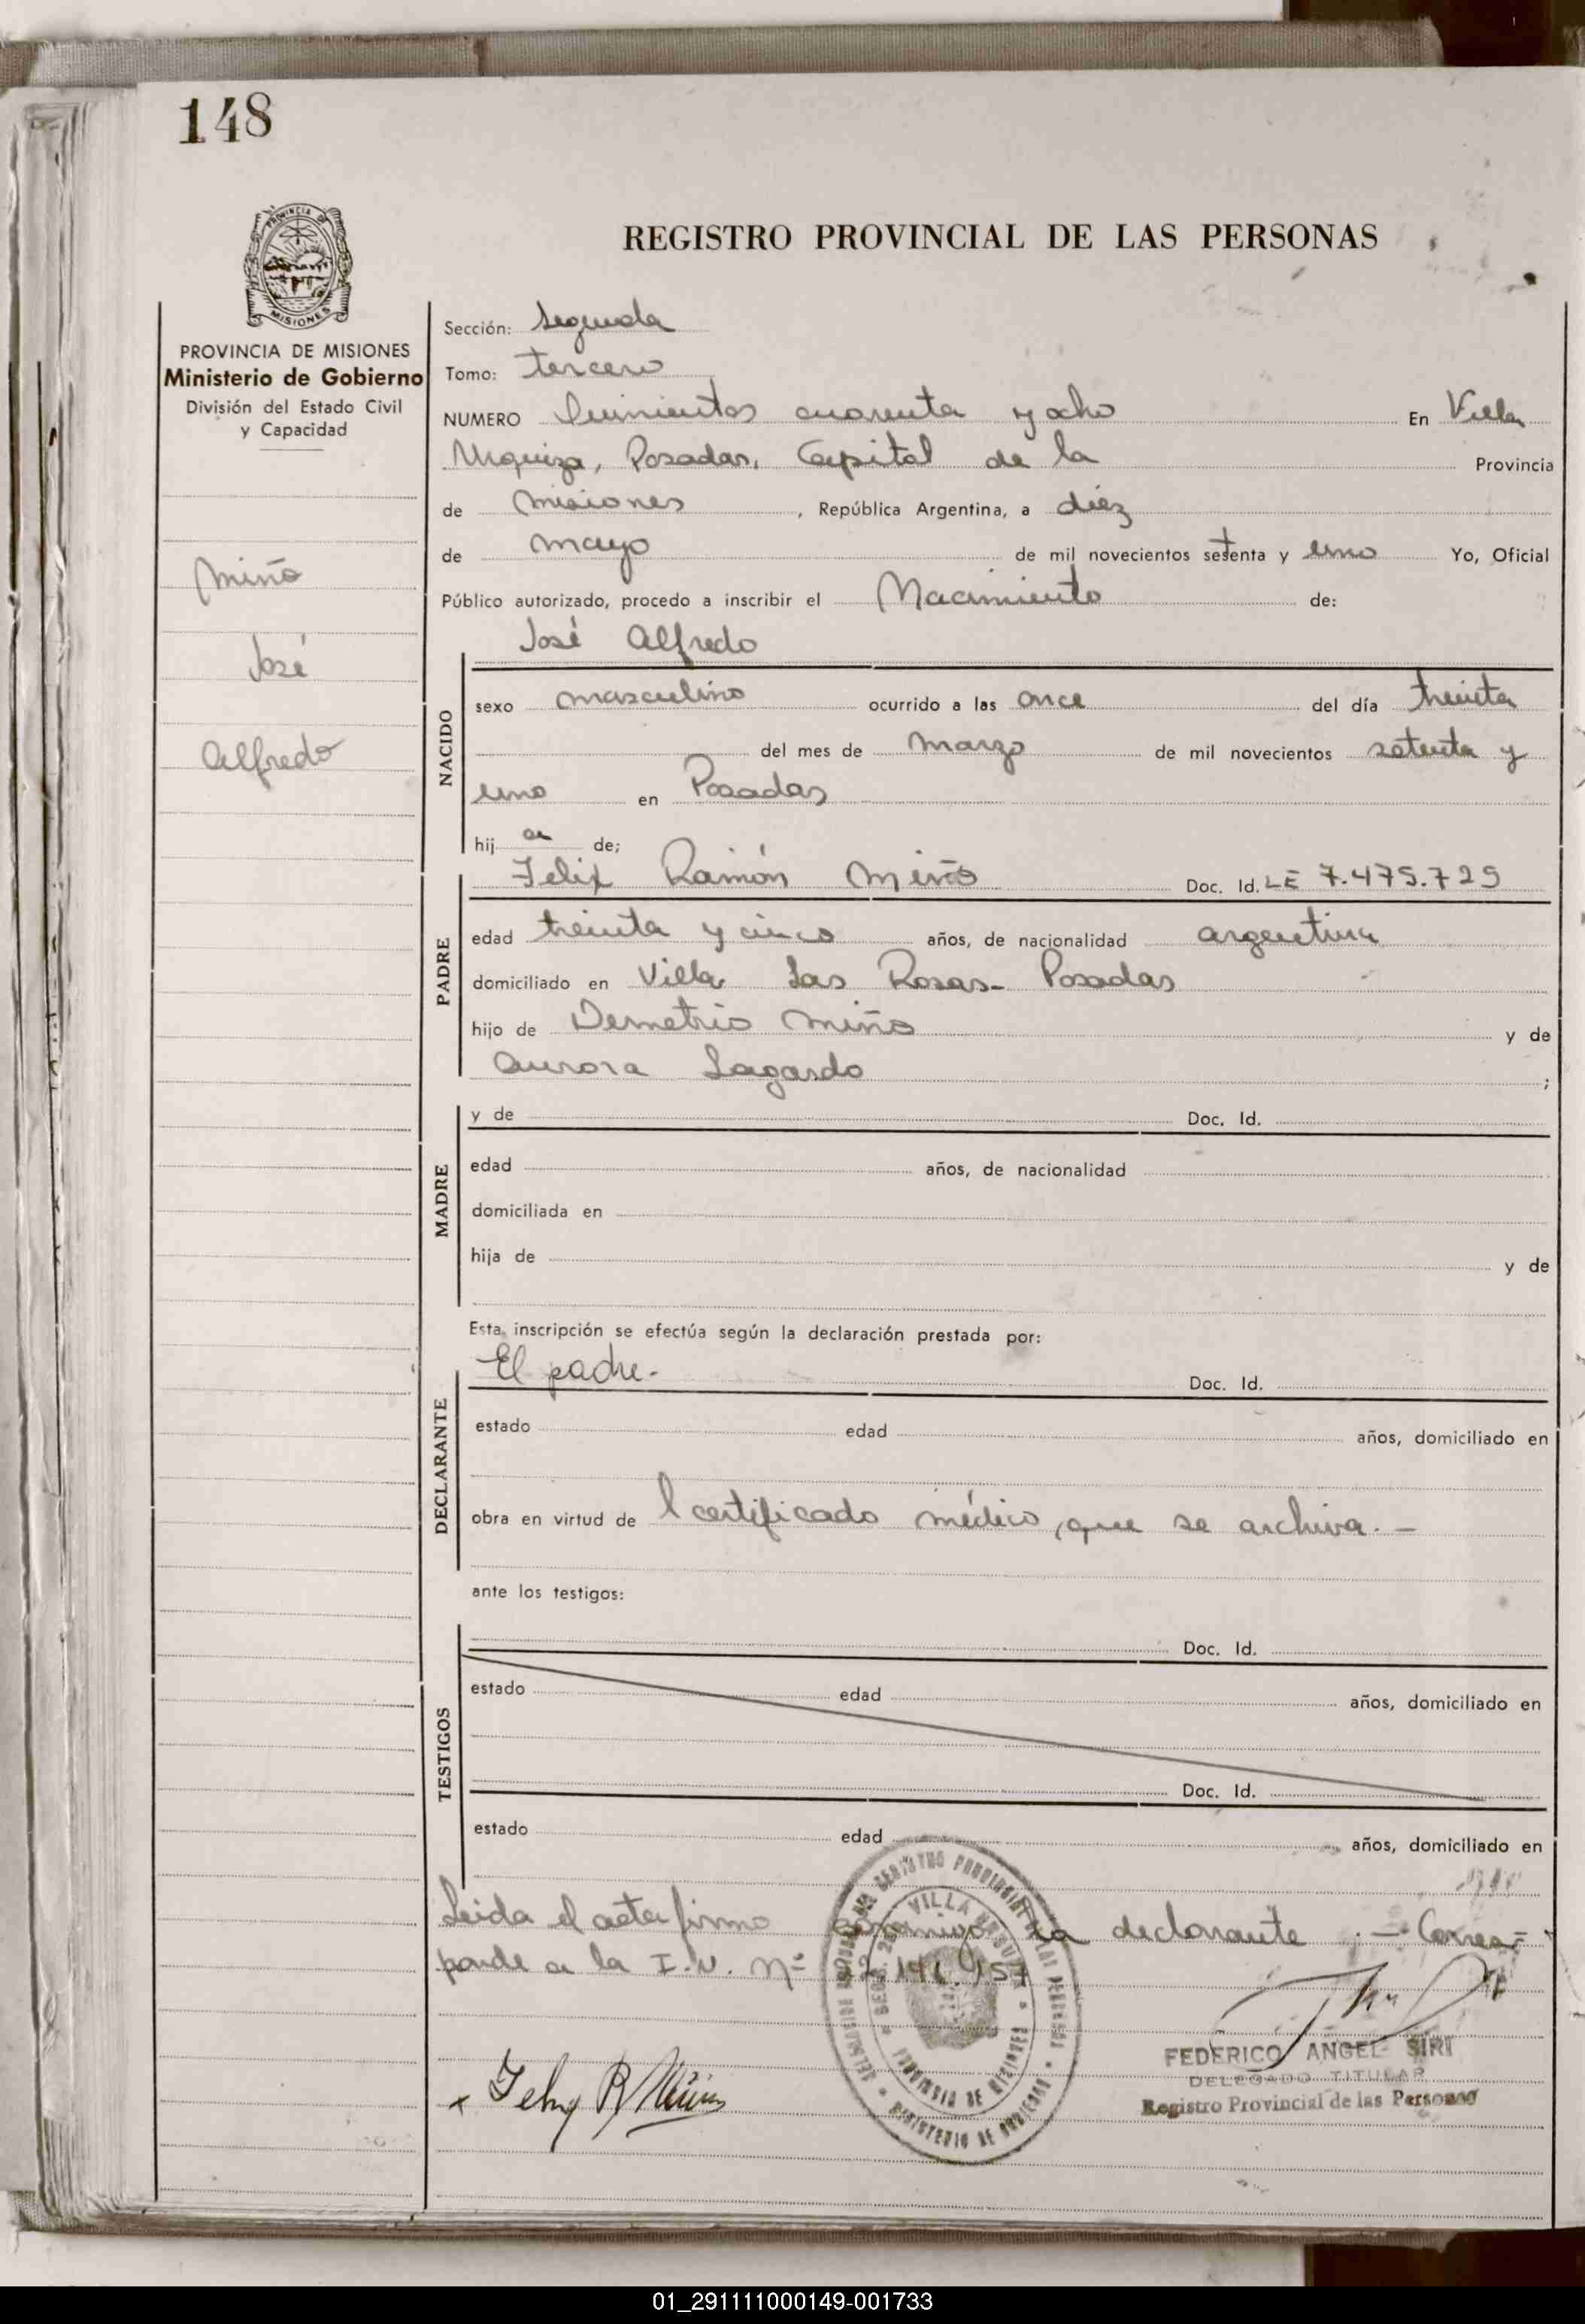 148
PROVINCIA DE
MISIONES
PROVINCIA DE MISIONES
Ministerio de Gobierno
División del Estado Civil
y Capacidad
Miño
José
Alfredo
REGISTRO PROVINCIAL DE LAS PERSONAS
Sección: Segunda
Tomo: tercero
NUMERO Quinientos cuarenta y ocho En Villa
Urquiza, Posadas, Capital de la Provincia
de Misiones, República Argentina, a diéz
de mayo de mil novecientos setenta y uno Yo, Oficial
Público autorizado, procedo a inscribir el Nacimiento de:
José Alfredo
NACIDO
sexo masculino ocurrido a las once del día treinta
del mes de marzo de mil novecientos setenta y
uno en Posadas
hij o de;
Felix Ramón Miño Doc. Id. LE 7.475.729
PADRE
edad treinta y cinco años, de nacionalidad argentina
domiciliado en Villa Las Rosas- Posadas
hijo de Demetrio Miño y de
Aurora Lagardo ;
MADRE
y de Doc. Id.
edad años, de nacionalidad
domiciliada en
hija de y de
Esta inscripción se efectúa según la declaración prestada por:
El padre.- Doc. Id.
DECLARANTE
estado edad años, domiciliado en
obra en virtud de l certificado médico, que se archiva.-
ante los testigos:
TESTIGOS
Doc. Id.
estado edad años, domiciliado en
Doc. Id.
estado edad años, domiciliado en
Leida el acta firma conmigo declarante .- Corres-
ponde a la I.N. Nº
Felix R Miño
FEDERICO ANGEL SIRI
DELEGADO TITULAR
Registro Provincial de las Personas
VILLA URQUIZA
PROVINCIA DE MISIONES
MINISTERIO DE GOBIERNO
01_291111000149-001733